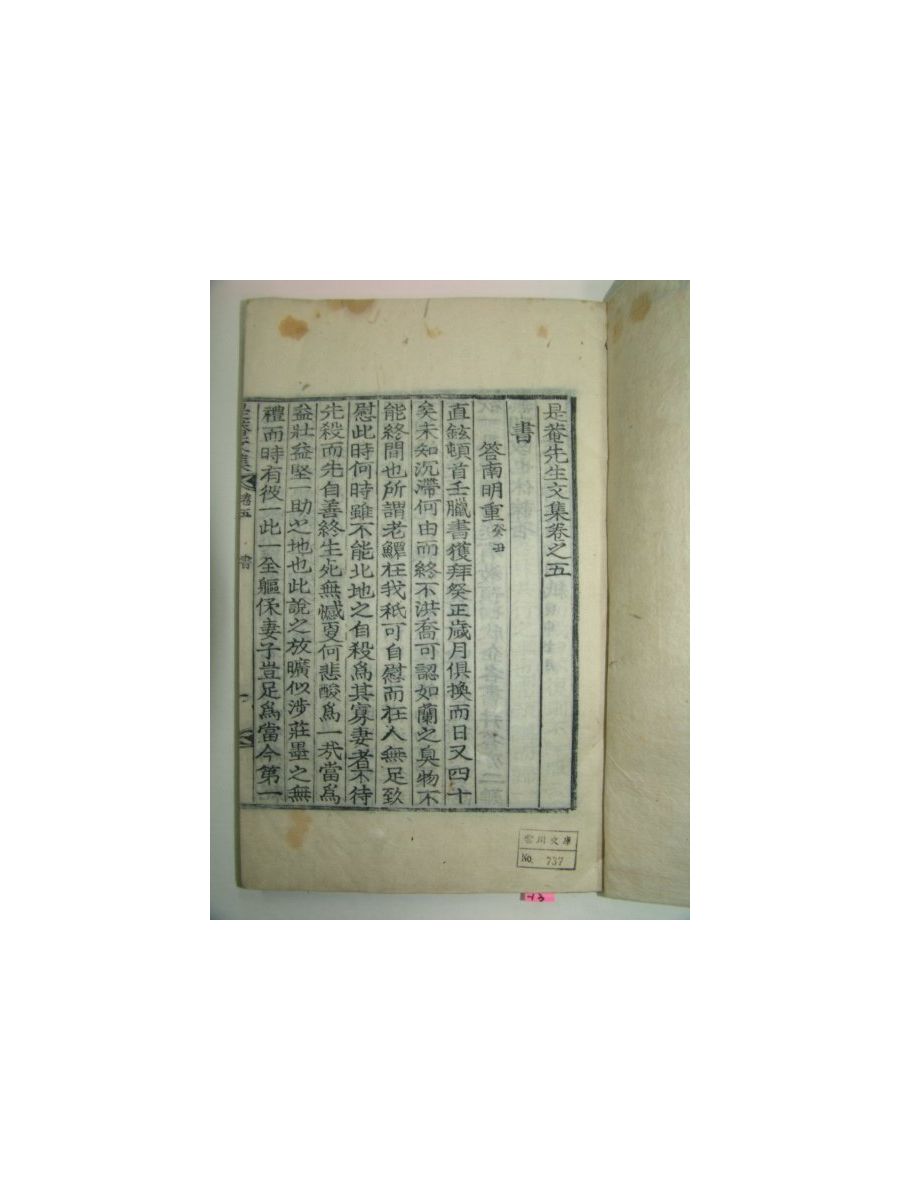 是菴先生文集卷之五
書
答南明重 癸丑
直鉉頓首壬臘書獲拜癸正歲月俱換而日又四十
矣未知沉滯何由而終不洪喬可認如蘭之臭物不
能終閒也所謂老鰥在我秖可自慰而在人無足致
慰此時何時雖不能北地之自殺爲其寡妻者不待
先殺而先自善終生死無憾夏何悲酸爲一死當爲
益壯益堅一助之地也此說之放曠似涉莊墨之無
禮而時有彼一此一全軀保妻子豈足爲當今第一
是菴文集
卷五
書
一
雲川文庫
No. 737